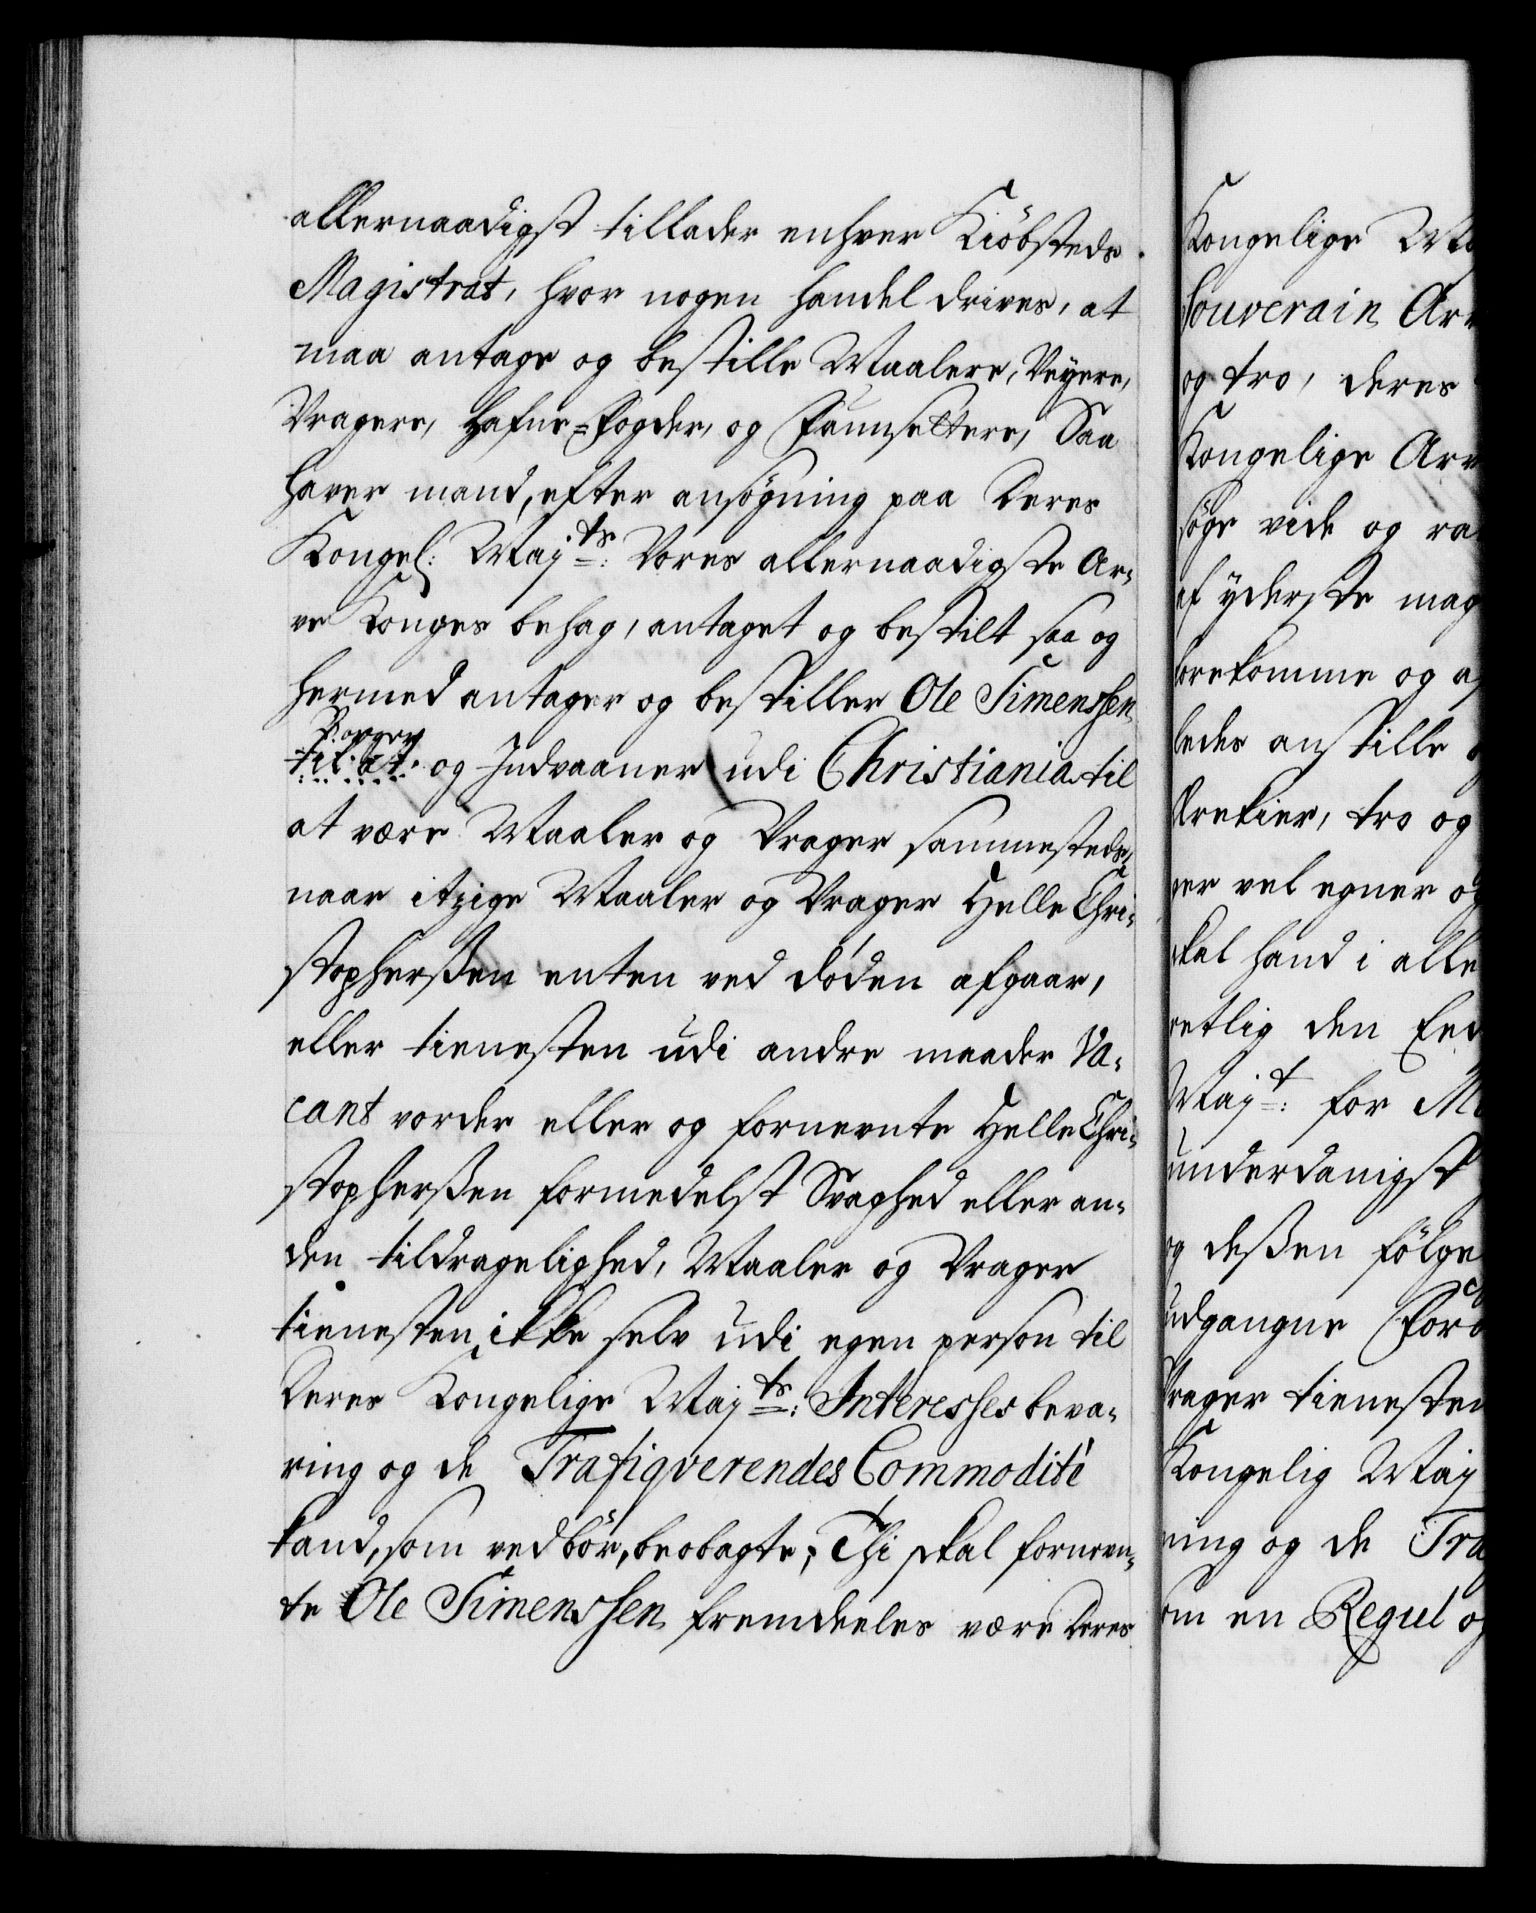 allernaadigst tillader enhver Kiöbsteds
Magistrat, hvor nogen handel drives, at
maa antage og bestille Maalere, Veyere,
Vragere, Hafne=Fogder, og Faunsettere, Saa
haver mand, efter ansögning paa Deres
Kongel: Majts: Vores allernaadigste Ar-
ve Konges behag, antaget og bestilt saa og
hermed antager og bestiller Ole Simenssen
Borger
til at og Indvaaner udi Christiania til
at være Maaler og Vrager sammesteds,
naar itzige Maaler og Vrager Helle Chri-
stopherßen enten ved döden afgaar,
eller tienesten udi andre maader Va-
cant vorder eller og fornevnte Helle Chri-
stopherßen formedelst Svaghed eller an-
den tildragelighed, Maaler og Vrager
tienesten ikke selv udi egen person til
Deres Kongelige Majts: Interesses beva-
ring og de Trafiqverendes Commodité
kand, som vedbör, beobagte; Thi skal fornevn-
te Ole Simenssen fremdeeles være Deres
Kongelige Ma
Souverain Arv
og tro, deres
Kongelige Arv
söge vide og ra
af yderste mag
forekomme og af
ledes anstille
Ærekier, tro og
ner vel egner og
skal hand i alle
retlig den Eed
Majt: for M
underdanigst
og deßen fölge
udgangne For
Vrager tienesten
Kongelig Maj
ring og de Tra
om en Regul og